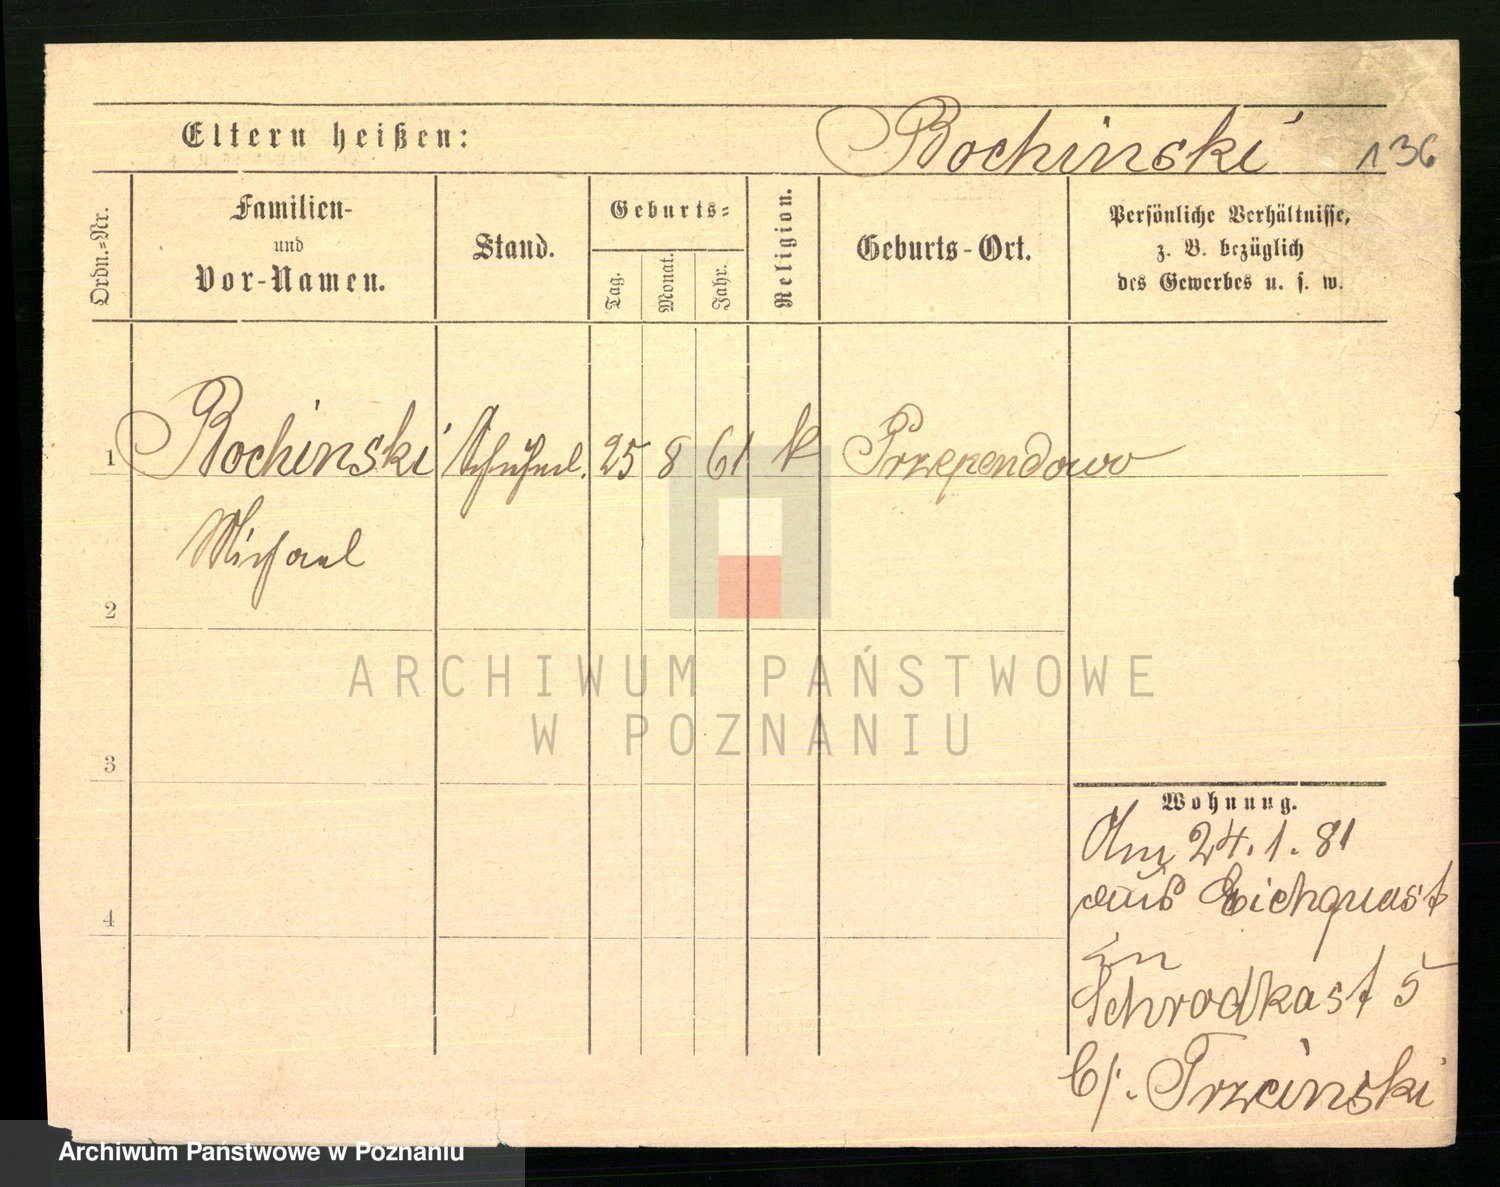 Eltern heißen: Rochinski 136
Ordn.-Nr.
Familien-
und
Vor-Namen.
Stand.
Geburts-
Tag.
Monat.
Jahr.
Religion.
Geburts-Ort.
Persönliche Verhältnisse,
z. B. bezüglich
des Gewerbes u. s. w.
1 Rochinski 25 8 61 k Przependowo
Michael
2
3
4
Wohnung.
Am 24.1.81
aus Eichquast
in
Schrodkast 5
b/. Trzcinski
ARCHIWUM PAŃSTWOWE
W POZNANIU
Archiwum Państwowe w Poznaniu